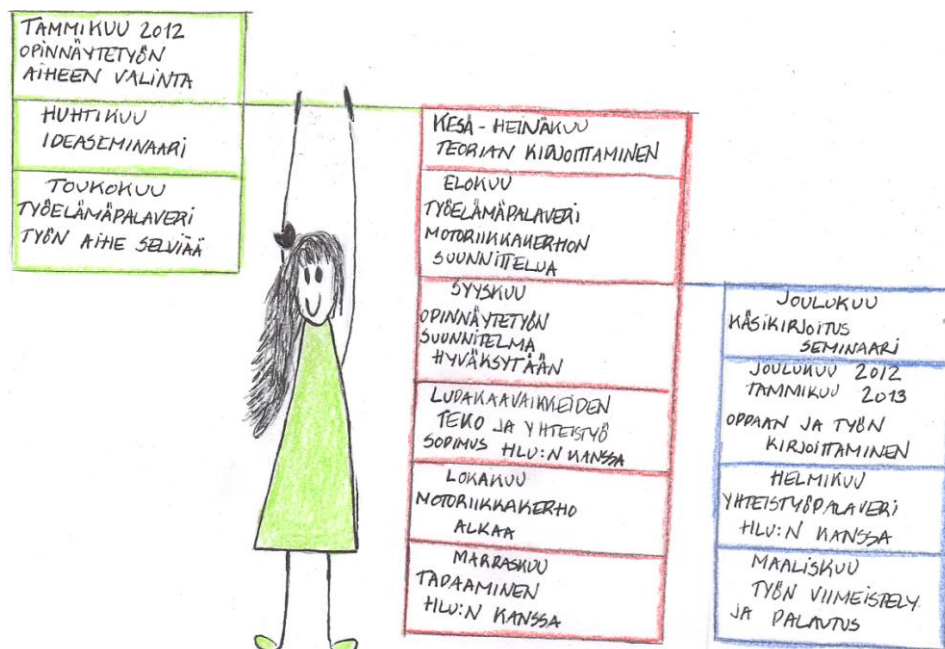 TAMMIKUU 2012
OPINNÄYTETYÖN
AIHEEN VALINTA
HUHTIKUU
IDEASEMINAARI
TOUKOKUU
TYÖELÄMÄPALAVERI
TYÖN AIHE SELVIÄÄ
KESÄ-HEINÄKUU
TEORIAN KIRJOITTAMINEN
ELOKUU
TYÖELÄMÄPALAVERI
MOTORIIKKAKERHON
SUUNNITTELUA
SYYSKUU
OPINNÄYTETYÖN
SUUNNITELMA
HYVÄKSYTÄÄN
LUPAKAAVAKKEIDEN
TEKO JA YHTEISTYÖ
SOPIMUS HLU:N KANSSA
LOKAKUU
MOTORIIKKAKERHO
ALKAA
MARRASKUU
TAPAAMINEN
HLU:N KANSSA
JOULUKUU
KÄSIKIRJOITUS
SEMINAARI
JOULUKUU 2012
TAMMIKUU 2013
OPPAAN JA TYÖN
KIRJOITTAMINEN
HELMIKUU
YHTEISTYÖPALAVERI
HLU:N KANSSA
MAALISKUU
TYÖN VIIMEISTELY
JA PALAUTUS